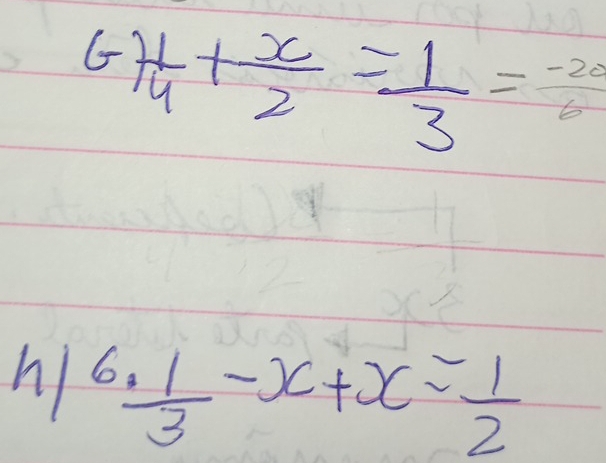 G) 1/4 + x/2 = 1/3 = -20/6
h) 6 . 1/3 - x + x = 1/2